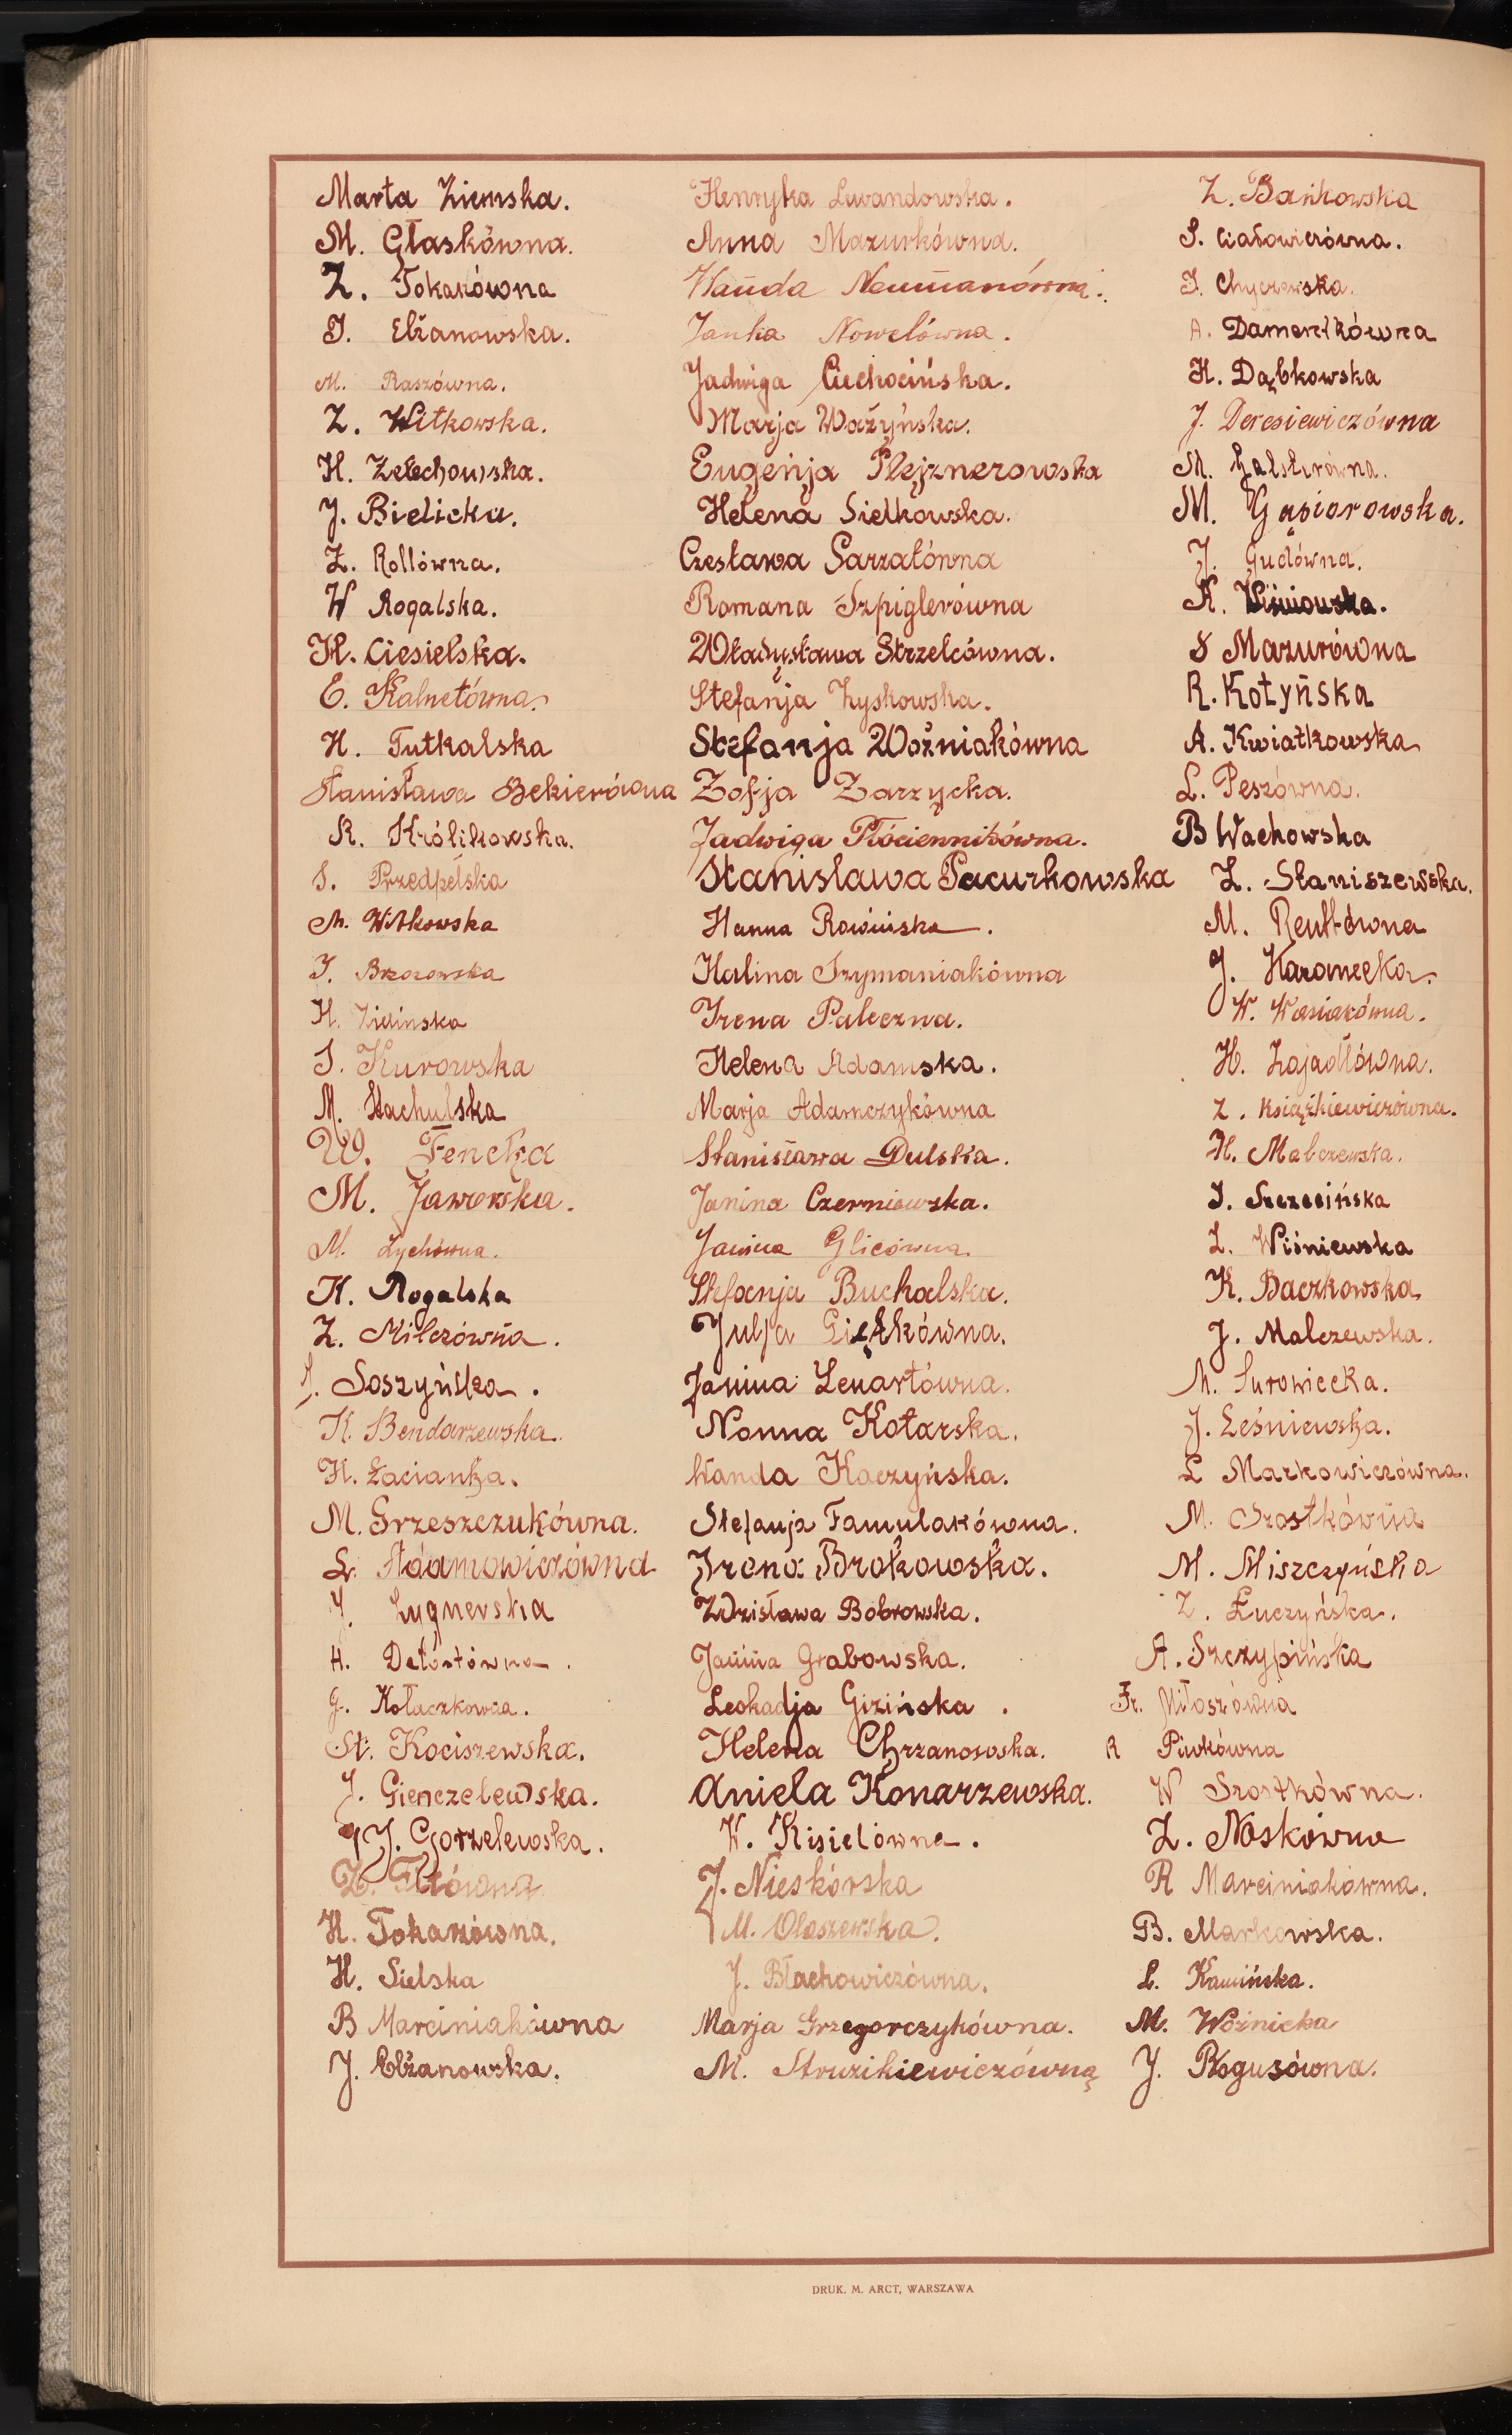 Marta Ziemska.
M. Głaskówna.
Z. Tokarzówna
J. Elżanowska.
M. Raszówna.
Z. Witkowska.
H. Żelechowska.
J. Bielicka.
Z. Rollówna.
W Rogalska.
H. Ciesielska.
E. Kalnetówna.
H. Tutkalska
Stanisława Bekierówna
K. Królikowska.
S. Przedpełska
M. Witkowska
J. Brzozowska
H. Zielinska
J. Kurowska
M. Stachulska
W. Fencka
M. Jaworska.
M. Lychówna.
K. Rogalska
Z. Milczówna.
J. Soszyńska.
K. Bendarzewska.
H. Łacianka.
M. Grzeszczukówna.
L. Adamowiczówna
J. Lygnerska
H.
J. Kołaczkowna.
St. Kociszewska.
J. Gienczelewska.
J. Gorzelewska.
Z.
H. Tokarzówna.
H. Sielska
B Marciniakówna
J. Elżanowska.
Henryka Lewandowska.
Anna Mazurkówna.
Wanda Neumanówna.
Janka Nowelówna.
Jadwiga Ciechocińska.
Marja Ważyńska.
Eugenja Plejznerowska
Helena Sielkowska.
Czesława Sarzałówna
Romana Szpiglerówna
Władysława Strzelcówna.
Stefanja Zyskowska.
Stefanja Woźniakówna
Zofja Zarzycka.
Jadwiga Płóciennikówna.
Stanisława Pacurkowska
Hanna Rowińska.
Halina Szymaniakówna
Irena Paleczna.
Helena Adamska.
Marja Adamczykówna
Stanisława Dulska.
Janina Czerniewska.
Janina Glicówna.
Stefanja Buchalska.
Julja Giętkówna.
Janina Lenartówna.
Nonna Kotarska.
Wanda Kaczyńska.
Stefanja Famulakówna.
Irena Brokowska.
Wdzisława Bobrowska.
Janina Grabowska.
Leokadja Gizińska.
Helena Chrzanowska.
Aniela Konarzewska.
W. Kisielówna.
J. Nieskórska
M. Olaszewska.
J. Błachowiczówna.
Marja Grzegorczykówna.
M. Struzikiewiczówna
Z. Bańkowska
S. Ciałowiczówna.
J. Chyczewska.
A.
H. Dąbkowska
J. Deresiewiczówna
M. Galsterówna.
M. Gąsiorowska.
J. Gudówna.
K. Wiśniowska.
S Mazurówna
R. Kotyńska
A. Kwiatkowska
L. Peszówna.
B Wachowska
Z. Staniszewska.
M. Reuttówna
J. Karanecka.
W. Wasiakówna.
H. Zajadłówna.
Z. Książkiewiczówna.
H. Malczewska.
J. Szczecińska
Z. Wiśniewska
K. Baczkowska
J. Malczewska.
M. Surowiecka.
J. Leśniewska.
L Markowiczówna.
M. Szostkówna
M. Miszczyńska
Z. Łuczyńska.
A. Szczypińska
Fr. Miłoszówna
R Piwkówna
W Szostkówna.
Z. Noskówna
R Marciniakówna.
B. Markowska.
L. Kamińska.
M. Woźnicka
J. Rogusówna.
DRUK. M. ARCT, WARSZAWA